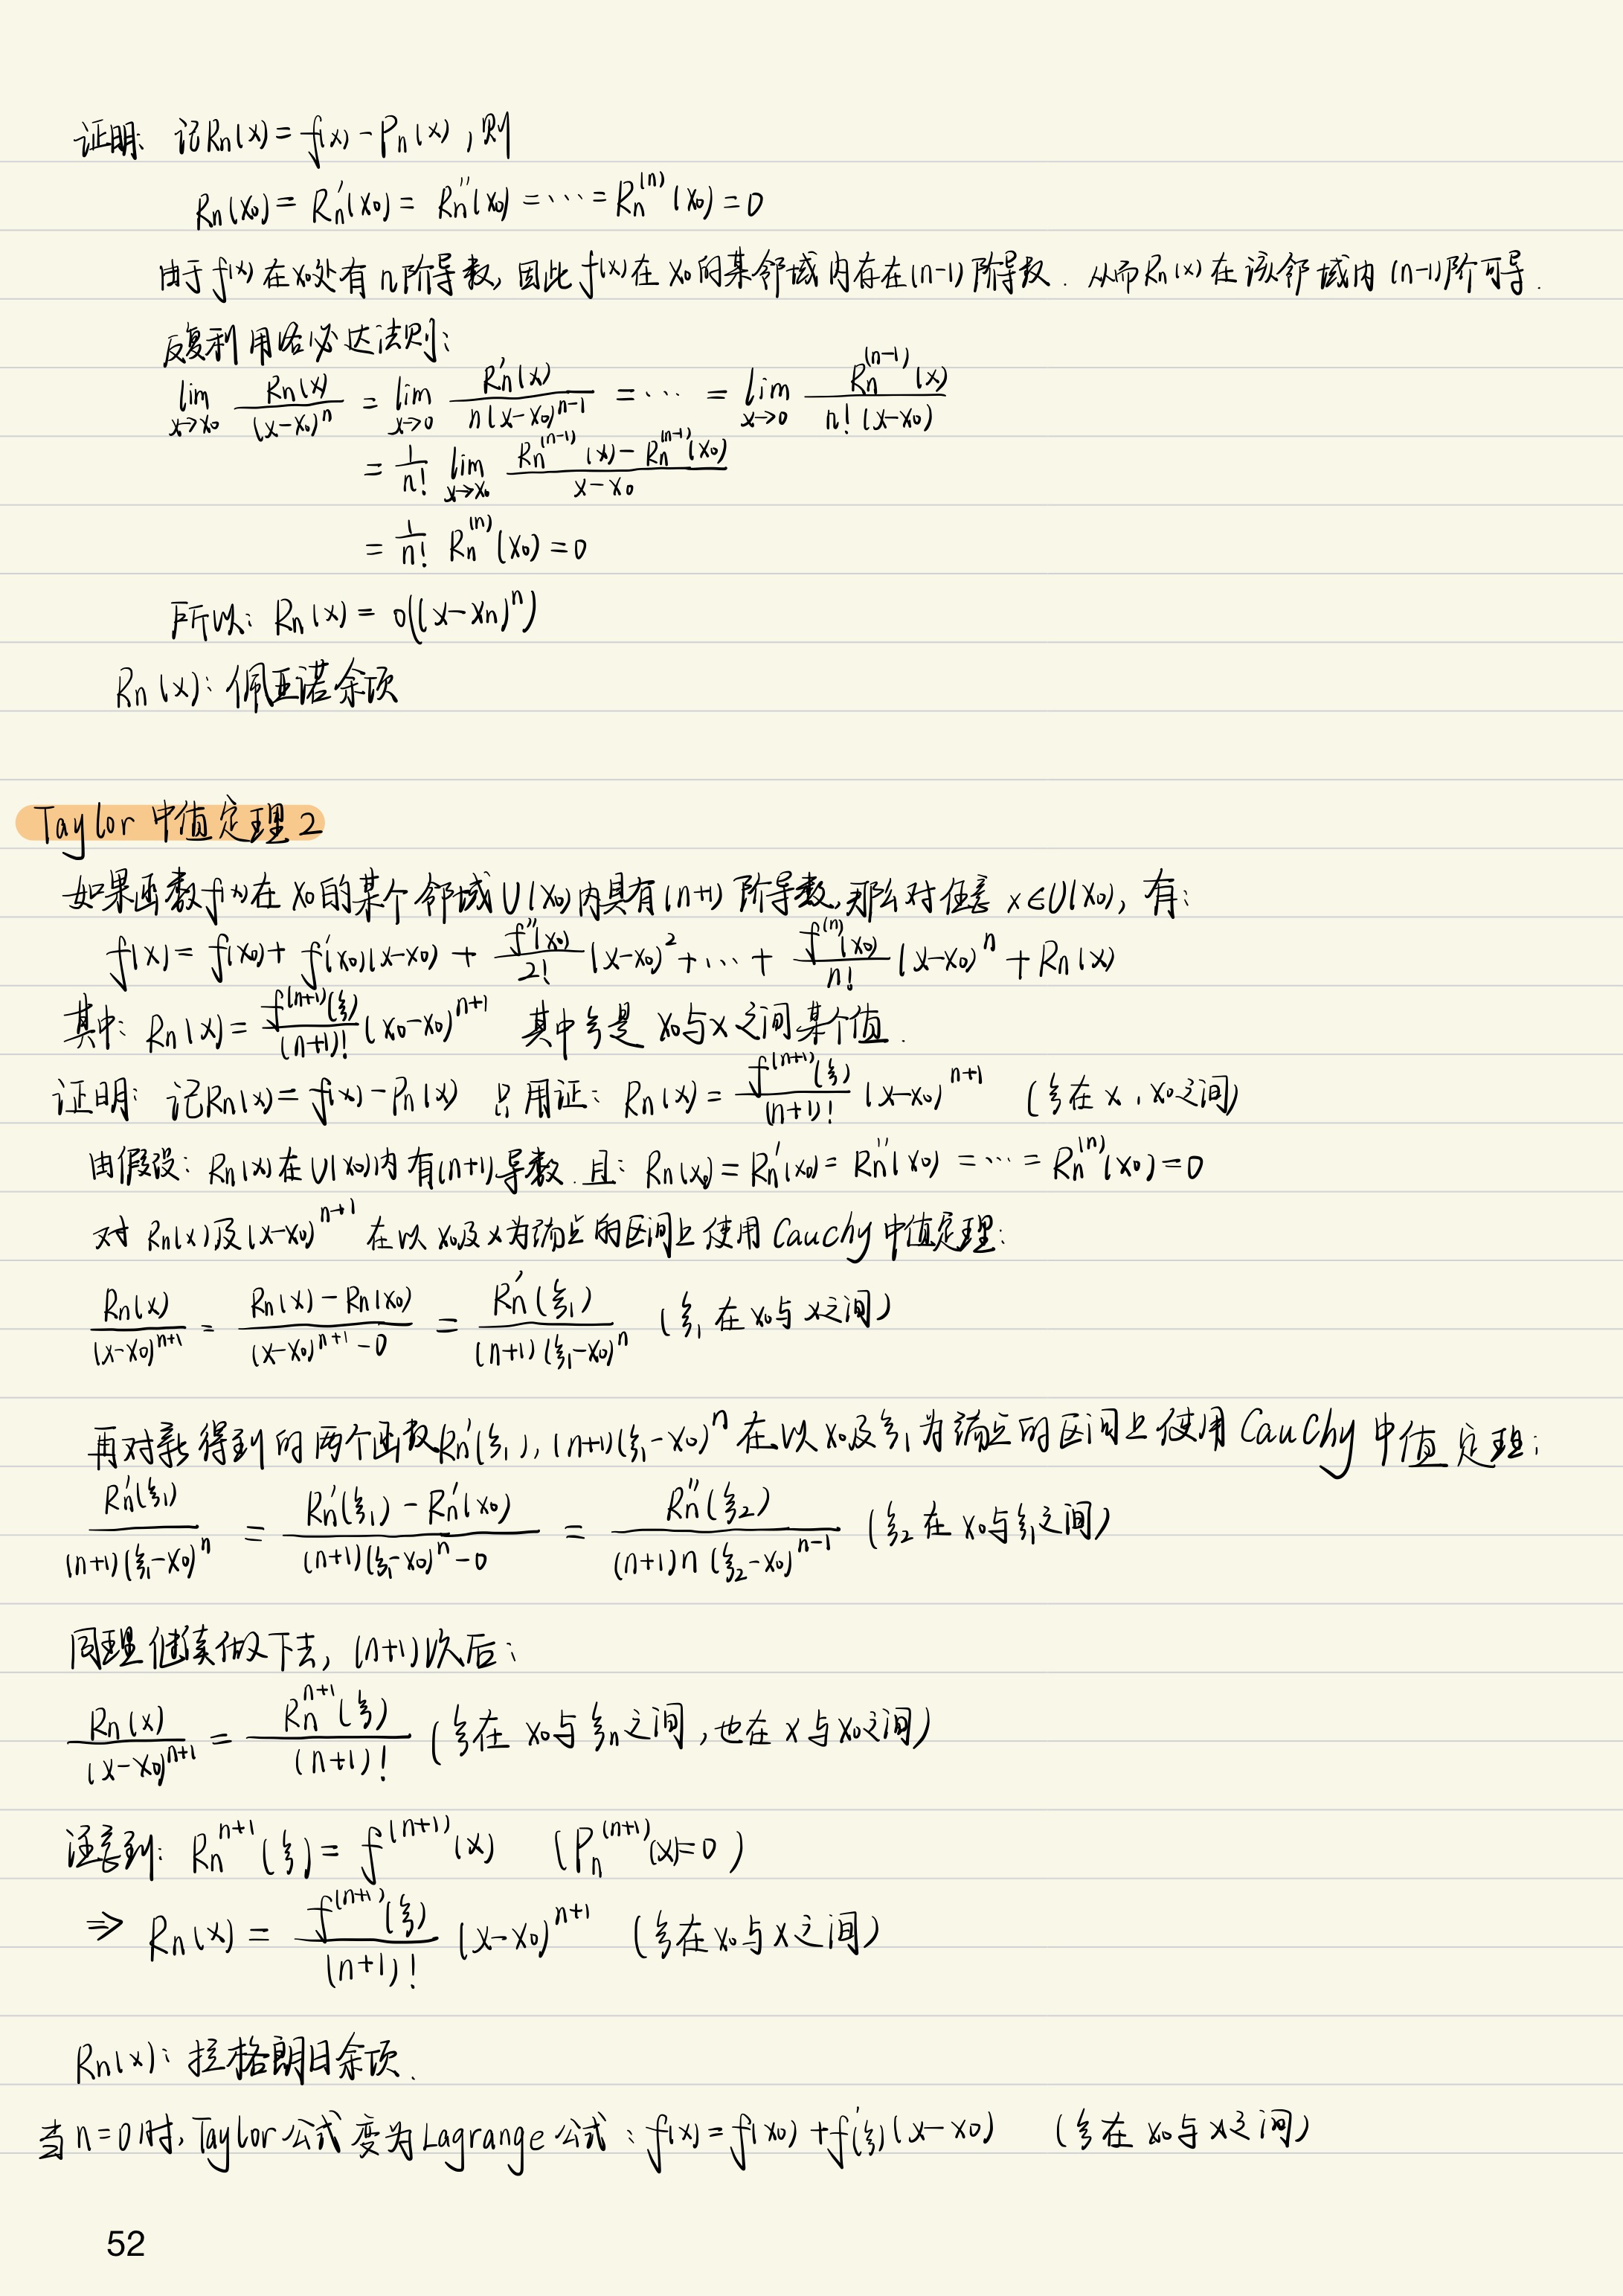 证明: 记Rn(x) = f(x) - Pn(x) , 则
Rn(x₀) = Rn'(x₀) = Rn''(x₀) = ··· = Rn⁽ⁿ⁾(x₀) = 0
由于 f(x) 在 x₀处有 n 阶导数, 因此 f(x) 在 x₀ 的某邻域内存在(n-1)阶导数. 从而Rn(x)在该邻域内 (n-1)阶可导.
反复利用洛必达法则:
lim_{x→x₀} Rn(x)/(x-x₀)ⁿ = lim_{x→0} Rn'(x)/n(x-x₀)ⁿ⁻¹ = ··· = lim_{x→0} Rn⁽ⁿ⁻¹⁾(x)/n!(x-x₀)
= 1/n! lim_{x→x₀} (Rn⁽ⁿ⁻¹⁾(x) - Rn⁽ⁿ⁻¹⁾(x₀))/(x-x₀)
= 1/n! Rn⁽ⁿ⁾(x₀) = 0
所以: Rn(x) = o((x-xn)ⁿ)
Rn(x): 佩亚诺余项
Taylor 中值定理 2
如果函数f(x)在 x₀ 的某个邻域U(x₀)内具有(n+1)阶导数,那么对任意 x∈U(x₀), 有:
f(x) = f(x₀) + f'(x₀)(x-x₀) + f''(x₀)/2! (x-x₀)² + ··· + f⁽ⁿ⁾(x₀)/n! (x-x₀)ⁿ + Rn(x)
其中: Rn(x) = f⁽ⁿ⁺¹⁾(ξ)/(n+1)! (x₀-x₀)ⁿ⁺¹ 其中ξ是 x₀与x之间某个值.
证明: 记Rn(x) = f(x) - Pn(x) 只用证: Rn(x) = f⁽ⁿ⁺¹⁾(ξ)/(n+1)! (x-x₀)ⁿ⁺¹ (ξ在 x , x₀之间)
由假设: Rn(x)在U(x₀)内有(n+1)导数. 且: Rn(x₀) = Rn'(x₀) = Rn''(x₀) = ··· = Rn⁽ⁿ⁾(x₀) = 0
对 Rn(x)及(x-x₀)ⁿ⁺¹ 在以 x₀及x为端点的区间上使用 Cauchy 中值定理:
Rn(x)/(x-x₀)ⁿ⁺¹ = (Rn(x) - Rn(x₀))/((x-x₀)ⁿ⁺¹ - 0) = Rn'(ξ₁)/(n+1)(ξ₁-x₀)ⁿ (ξ₁ 在 x₀与 x之间)
再对新得到的两个函数Rn'(ξ₁), (n+1)(ξ₁-x₀)ⁿ 在以x₀及ξ₁为端点的区间上使用 Cauchy 中值定理:
Rn'(ξ₁)/(n+1)(ξ₁-x₀)ⁿ = (Rn'(ξ₁) - Rn'(x₀))/((n+1)(ξ₁-x₀)ⁿ - 0) = Rn''(ξ₂)/(n+1)n(ξ₂-x₀)ⁿ⁻¹ (ξ₂ 在 x₀与ξ₁之间)
同理继续做下去, (n+1)次后:
Rn(x)/(x-x₀)ⁿ⁺¹ = Rnⁿ⁺¹(ξ)/(n+1)! (ξ在 x₀与ξn之间, 也在 x 与x₀之间)
注意到: Rnⁿ⁺¹(ξ) = f⁽ⁿ⁺¹⁾(x) (Pn⁽ⁿ⁺¹⁾(x)=0)
⇒ Rn(x) = f⁽ⁿ⁺¹⁾(ξ)/(n+1)! (x-x₀)ⁿ⁺¹ (ξ在x₀与x之间)
Rn(x): 拉格朗日余项.
当 n=0时, Taylor 公式 变为 Lagrange 公式: f(x) = f(x₀) + f'(ξ)(x-x₀) (ξ在 x₀与 x之间)
52